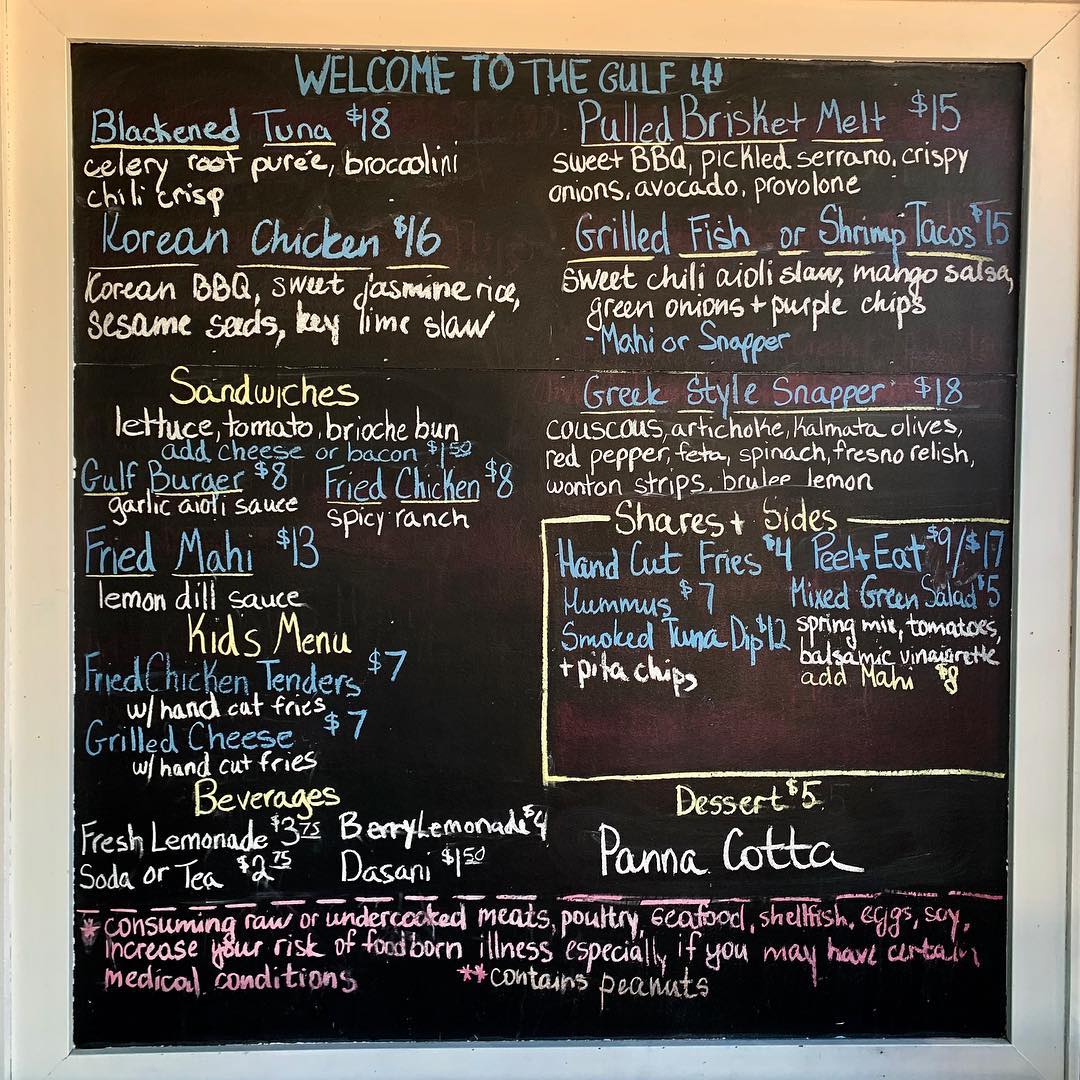 WELCOME TO THE GULF
Blackened Tuna $18
celery root purée, brocoolini
chili crisp
Korean Chicken $16
Korean BBQ, sweet jasmine rice,
sesame seeds, key lime slaw
Sandwiches
lettuce, tomato, brioche bun
add cheese or bacon $1.50
Gulf Burger $8
garlic aioli sauce
Fried Chicken $8
spicy ranch
Fried Mahi $13
lemon dill sauce
Kids Menu
Fried Chicken Tenders $7
w/ hand cut fries
Grilled Cheese $7
w/ hand cut fries
Beverages
Fresh Lemonade $3.75
Berry Lemonade $4
Soda or Tea $2.75
Dasani $1.50
Pulled Brisket Melt $15
sweet BBQ, pickled serrano, crispy
onions, avocado, provolone
Grilled Fish or Shrimp Tacos $15
sweet chili aioli slaw, mango salsa,
green onions + purple chips
- Mahi or Snapper
Greek Style Snapper $18
couscous, artichoke, kalmata olives,
red pepper, feta, spinach, fresno relish,
wonton strips, brulee lemon
Shares + Sides
Hand Cut Fries $4
Hummus $7
Smoked Tuna Dip $12
+ pita chips
Peel + Eat $9/$17
Mixed Green Salad $5
spring mix, tomatoes,
balsamic vinaigrette
add Mahi $8
Dessert $5
Panna Cotta
* consuming raw or undercooked meats, poultry, seafood, shellfish, eggs, soy,
increase your risk of foodborn illness especially if you may have certain
medical conditions **contains peanuts